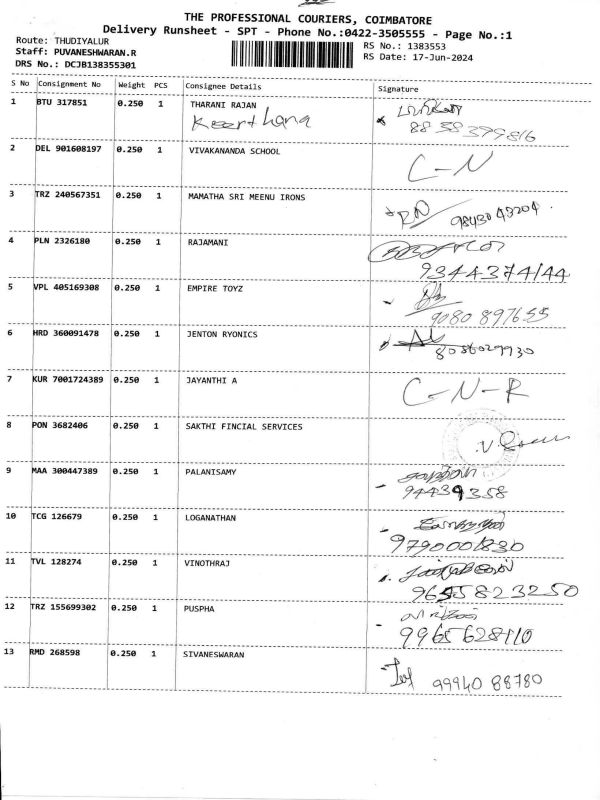 THE PROFESSIONAL COURIERS, COIMBATORE
Delivery Runsheet - SPT - Phone No.:0422-3505555 - Page No.:1
Route: THUDIYALUR
Staff: PUVANESHWARAN.R
DRS No.: DCJB138355301
RS No.: 1383553
RS Date: 17-Jun-2024
S No Consignment No Weight PCS Consignee Details Signature
1 BTU 317851 0.250 1 THARANI RAJAN
Keerthana
2 DEL 901608197 0.250 1 VIVAKANANDA SCHOOL C-N
3 TRZ 240567351 0.250 1 MAMATHA SRI MEENU IRONS 9843043204
4 PLN 2326180 0.250 1 RAJAMANI
9344374144
5 VPL 405169308 0.250 1 EMPIRE TOYZ
9080 897655
6 HRD 360091478 0.250 1 JENTON RYONICS
7 KUR 7001724389 0.250 1 JAYANTHI A C-N-R
8 PON 3682406 0.250 1 SAKTHI FINCIAL SERVICES
9 MAA 300447389 0.250 1 PALANISAMY
94439358
10 TCG 126679 0.250 1 LOGANATHAN
9790001830
11 TVL 128274 0.250 1 VINOTHRAJ
9655823250
12 TRZ 155699302 0.250 1 PUSPHA
9965628110
13 RMD 268598 0.250 1 SIVANESWARAN
99940 88780